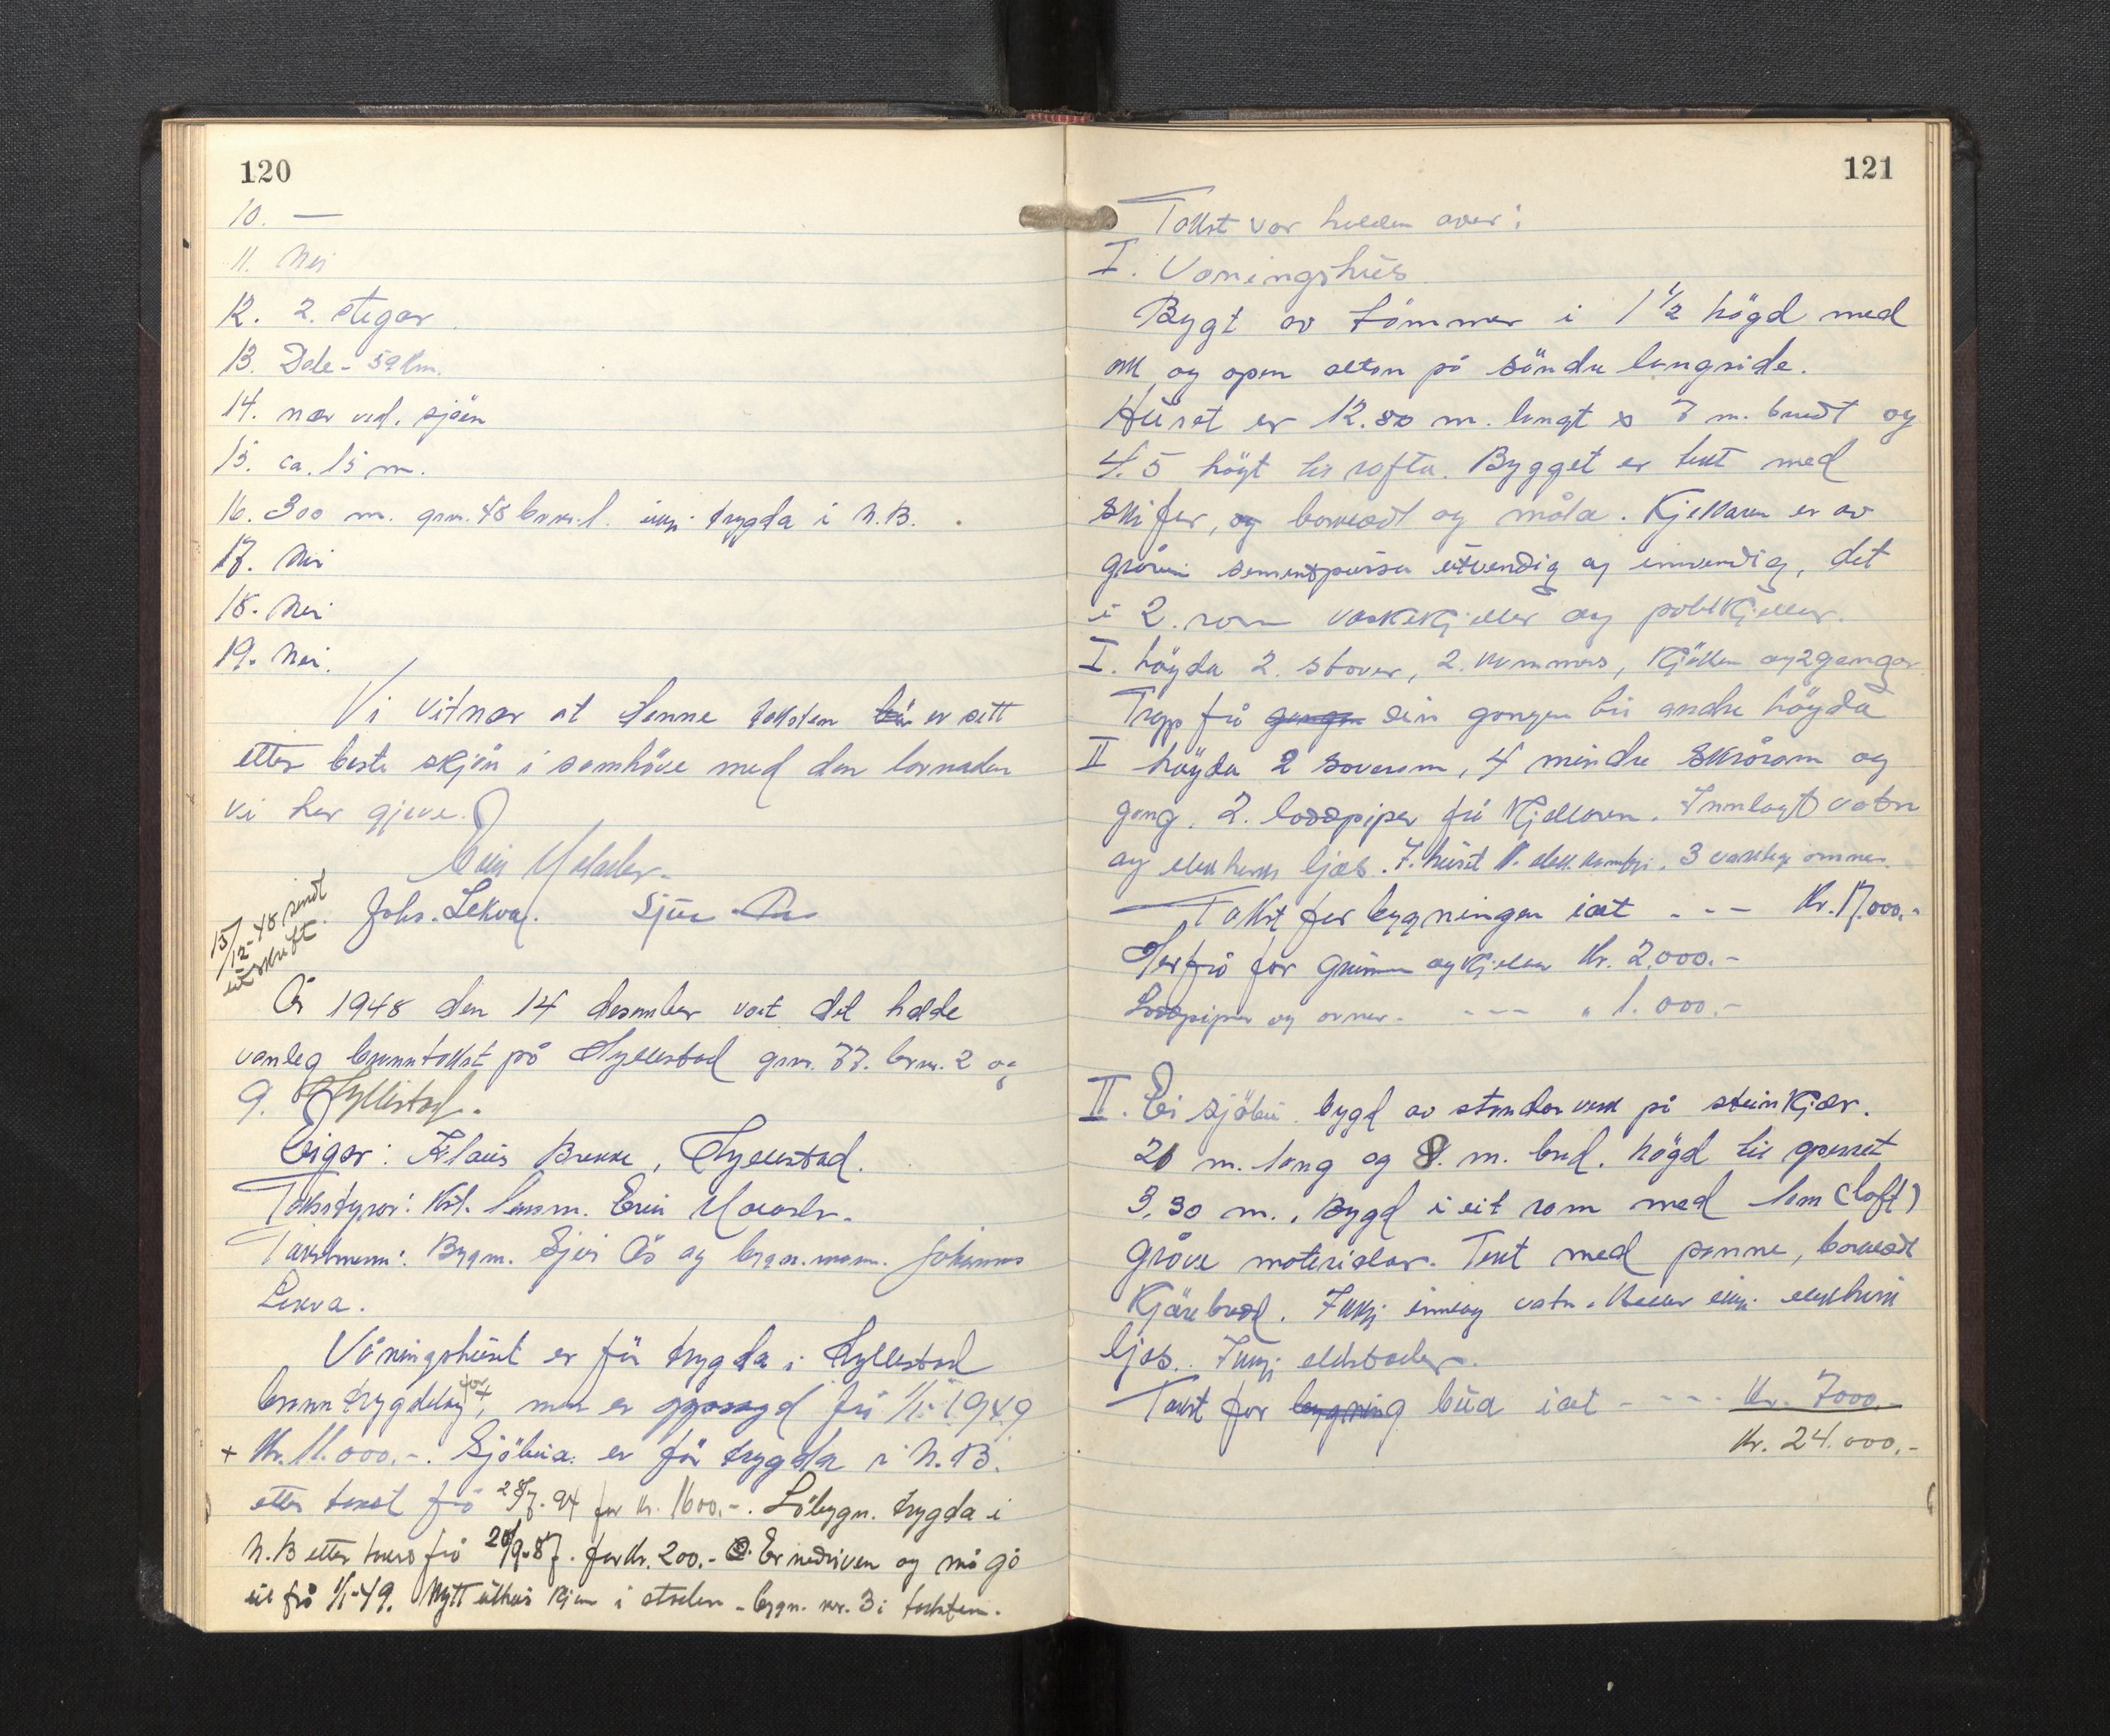 120
10. —
11. Nei
12. 2. stegar
13. Dale - 59 km.
14. nær ved. sjøen
15. ca. 15 m.
16. 300 m. gnr. 48 brnr. 1. ikkj. trygda i N.B.
17. Nei
18. Nei
19. Nei.
Vi vitnar at denne taksten er sett
etter beste skjön i samhöve med den lovnaden
vi har gjeve.
Johs. Lekva. Sjur Ås
15/12-48 sendt
utskrift.
År 1948 den 14 desember vart det halde
vanleg branntakst på Hyllestad gnr. 77. brnr. 2 og
9. Hyllestad.
Eigar: Klaus Brekke, Hyllestad.
Takstyrar: Kst. lensm.
Takstmenn: Bygm. Sjur Ås og bygn.mann. Johannes
Lekva.
Våningshuset er för trygda i Hyllestad
branntrygdelag for +, men er uppsagd frå 1/1-1949
+ Kr. 11.000.-. Sjöbua er för trygda i N.B.
etter takst frå for kr. 1600.-. Löbygn. trygda i
N.B etter takst frå for Kr. 200.- Er nedriven og må gå
ut frå 1/1-49. Nytt uthus kjem i staden - bygn. nr. 3 i taksten.
121
Takst var halden over:
I. Vaningshus
Bygt av tömmer i 1 1/2 högd med
ark og open altan på söndre langside.
Huset er 12.80 m. langt x 7 m. breidt og
4.5 högt til rafta. Bygget er tekt med
skifer, og bordkledt og måla. Kjellaren er av
gråstein sementpussa utvendig og innvendig, det
i 2. rom vaskekjeller og potetkjeller.
I. høgda 2. stover, 2. kammers, kjökken og 2 gangar
Trapp frå gangen ein gangen til andre högda
II högda 2 soverom, 4 mindre skrårom og
gang. 2. loddpiper frå kjellaren. Innlagt vatn
og elektrisk ljos. I huset 1. elek. komfyr. 3 vanlege omnar.
Takst for bygningen i alt - - - Kr. 17.000.-
Herfrå for grunn og kjellar Kr. 2.000.-
Loddpiper og omnar. - - - " 1.000.-
II. Ei sjöbu. bygd av stenderverk på steinkjer.
20 m. lang og 8. m. breid. högd til golvet
3.30 m.. Bygd i eit rom med lem (loft)
Gröve materialar. Tekt med panne, bordkledt
Ikkj innlag vatn. Heller ikkj elektrisk
ljos. Ikkj eldstader.
Takst for bygning bua i alt - - - Kr. 7000.-
Kr. 24.000.-